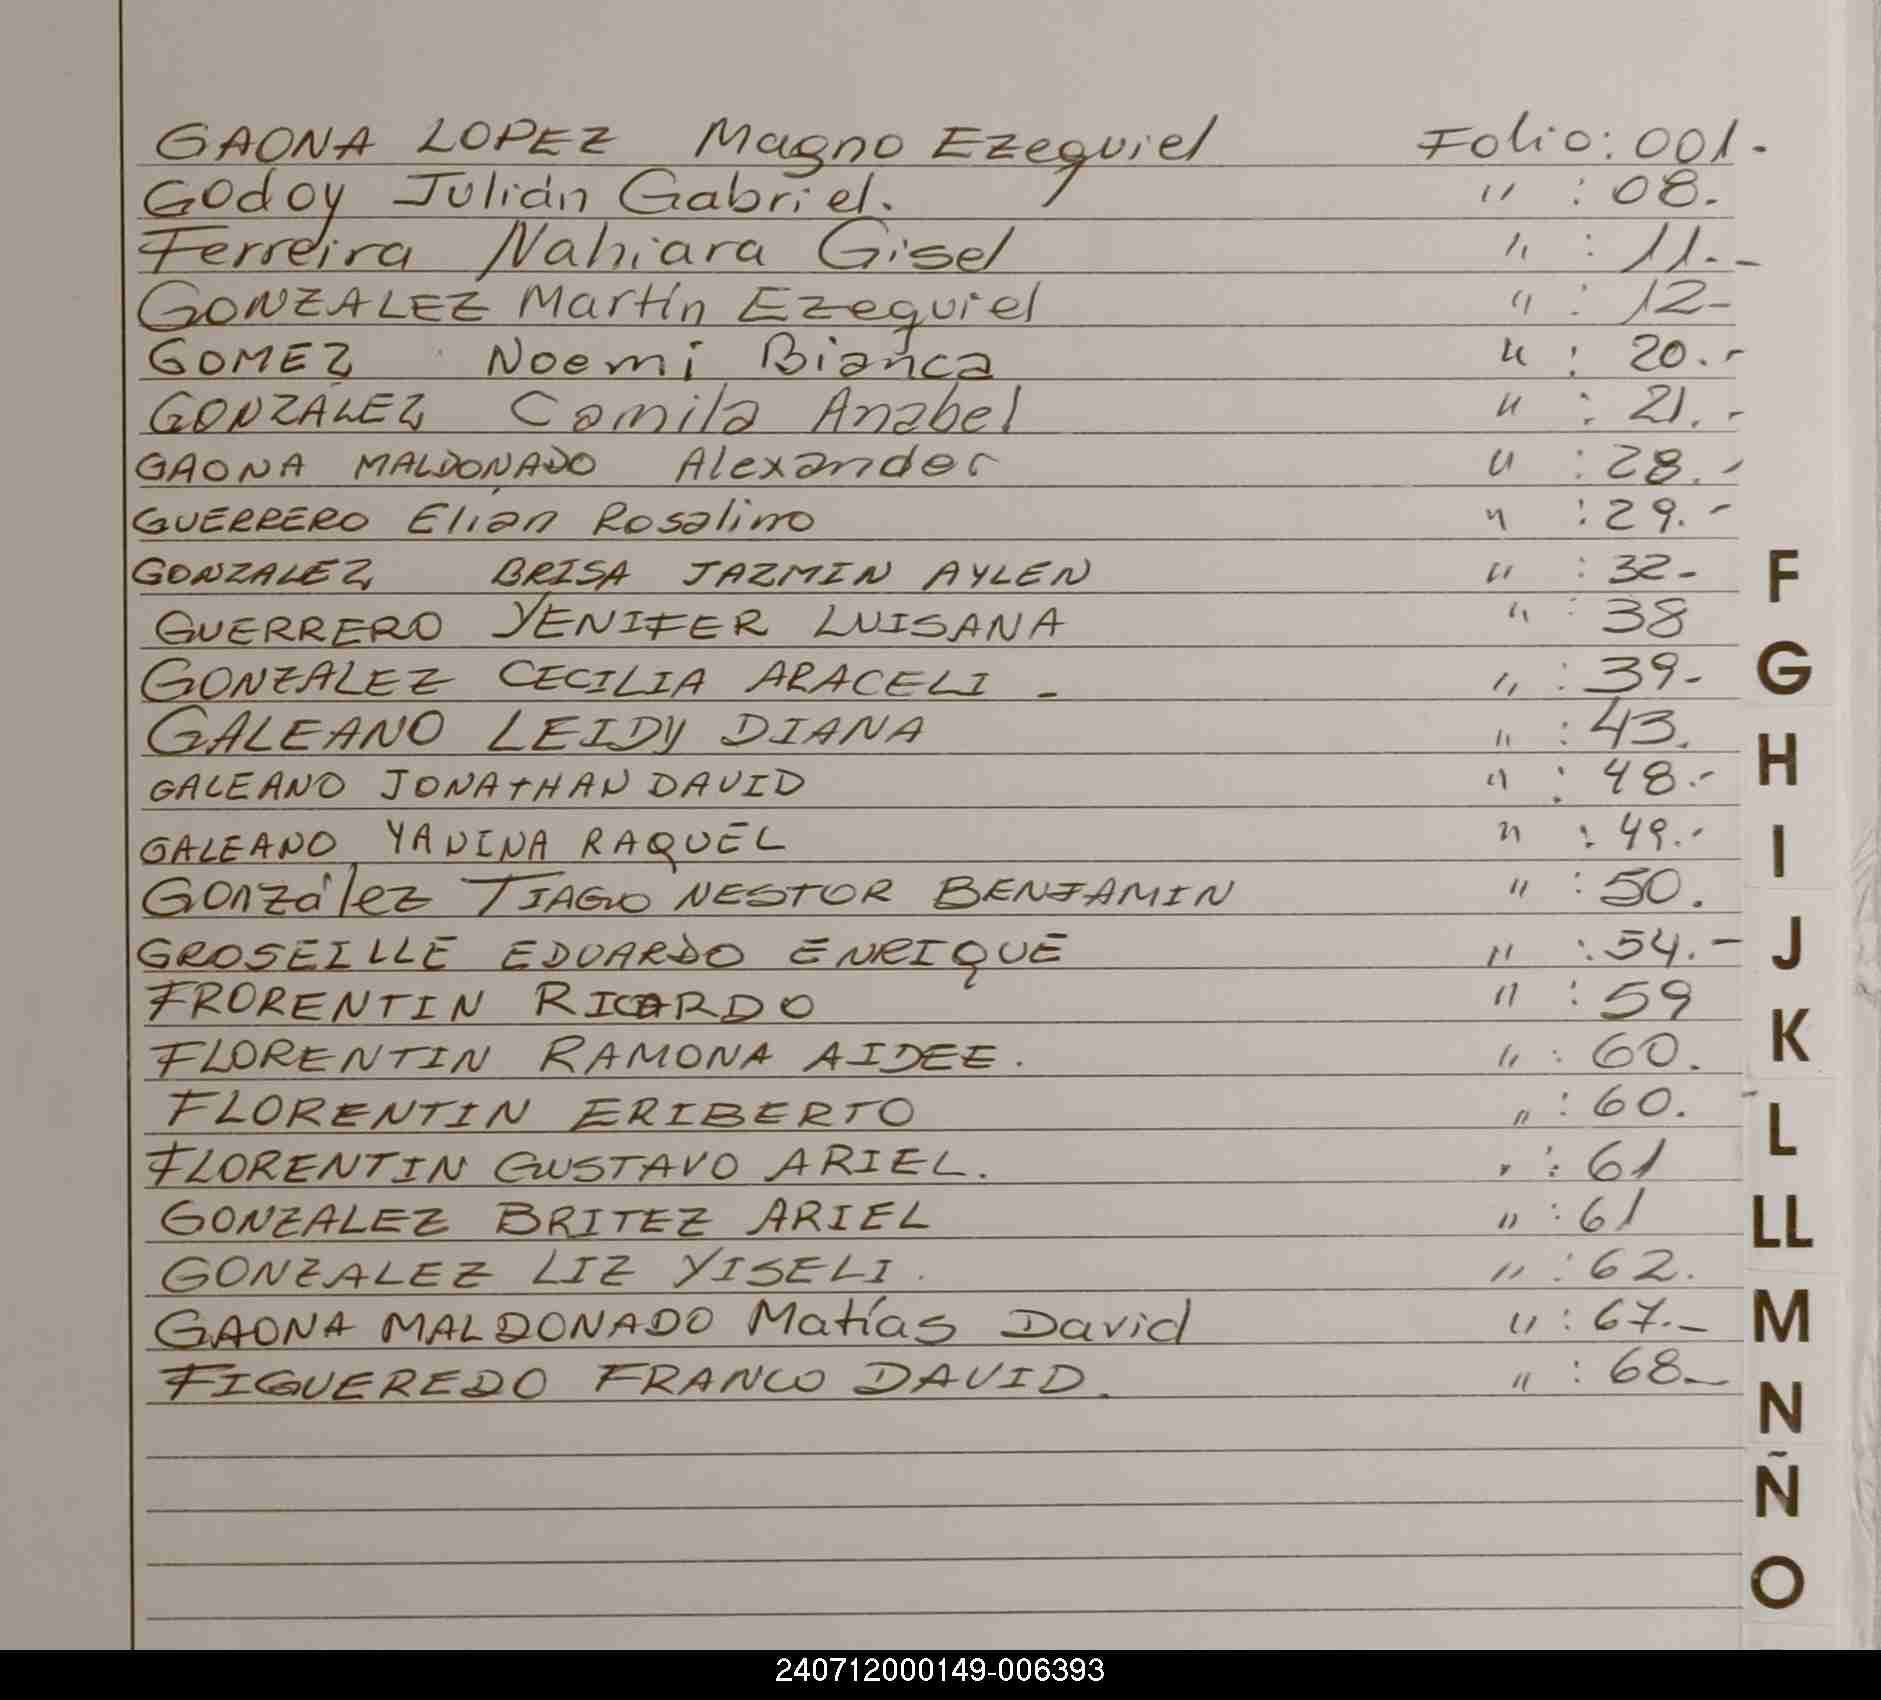 GAONA LOPEZ Magno Ezequiel Folio: 001.
Godoy Julián Gabriel. " : 08.
Ferreira Nahiara Gisel " : 11.-
GONZALEZ Martín Ezequiel " : 12-
GOMEZ Noemi Bianca " : 20.-
GONZALEZ Camila Anabel " : 21.-
GAONA MALDONADO Alexander " : 28.-
GUERRERO Elián Rosalino " : 29.-
GONZALEZ BRISA JAZMIN AYLEN " : 32-
GUERRERO YENIFER LUISANA " : 38
GONZALEZ CECILIA ARACELI - " : 39-
GALEANO LEIDY DIANA " : 43.
GALEANO JONATHAN DAVID " : 48.-
GALEANO YANINA RAQUEL " : 49.-
González TIAGO NESTOR BENJAMIN " : 50.
GROSEILLE EDUARDO ENRIQUE " : 54.-
FRORENTIN RICARDO " : 59
FLORENTIN RAMONA AIDEE. " : 60.
FLORENTIN ERIBERTO " : 60.
FLORENTIN GUSTAVO ARIEL. " : 61
GONZALEZ BRITEZ ARIEL " : 61
GONZALEZ LIZ YISELI. " : 62.
GAONA MALDONADO Matías David " : 67.-
FIGUEREDO FRANCO DAVID. " : 68-
F
G
H
I
J
K
L
LL
M
N
Ñ
O
240712000149-006393